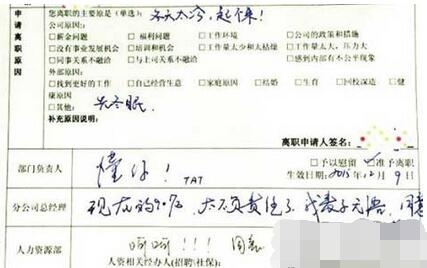 申请离职原因
您离职的主要原是(单选): 冬天太冷,起不来!
公司原因:
□薪金问题 □福利问题 □工作环境 □公司的政策和措施
□没有事业发展机会 □培训和机会 □工作量太少和太枯燥 □工作量太大、压力大
□同事关系不融洽 □与上司关系不融洽 □感到内部有不公平现象
外部原因:
□找到更好的工作 □自己经营生意 □家庭原因 □结婚 □生育 □回校深造 □健康原因
□其他: 去冬眠
补充原因说明:
离职申请人签名:
部门负责人 懂你! TAT □予以慰留 ☑准予离职
生效日期 2015 12月9日
分公司总经理 现在的90后,太不负责任了,
人力资源部 呵呵!!! 同意
人资相关经办人(招聘/社保)